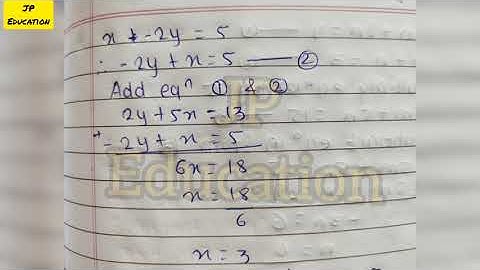 JP
EDUCATION
x + -2y = 5
∴ -2y + x = 5 —— ②
Add eqⁿ ① & ②
2y + 5x = 13
+ -2y + x = 5
6x = 18
x = 18
6
x = 3
JP
Education